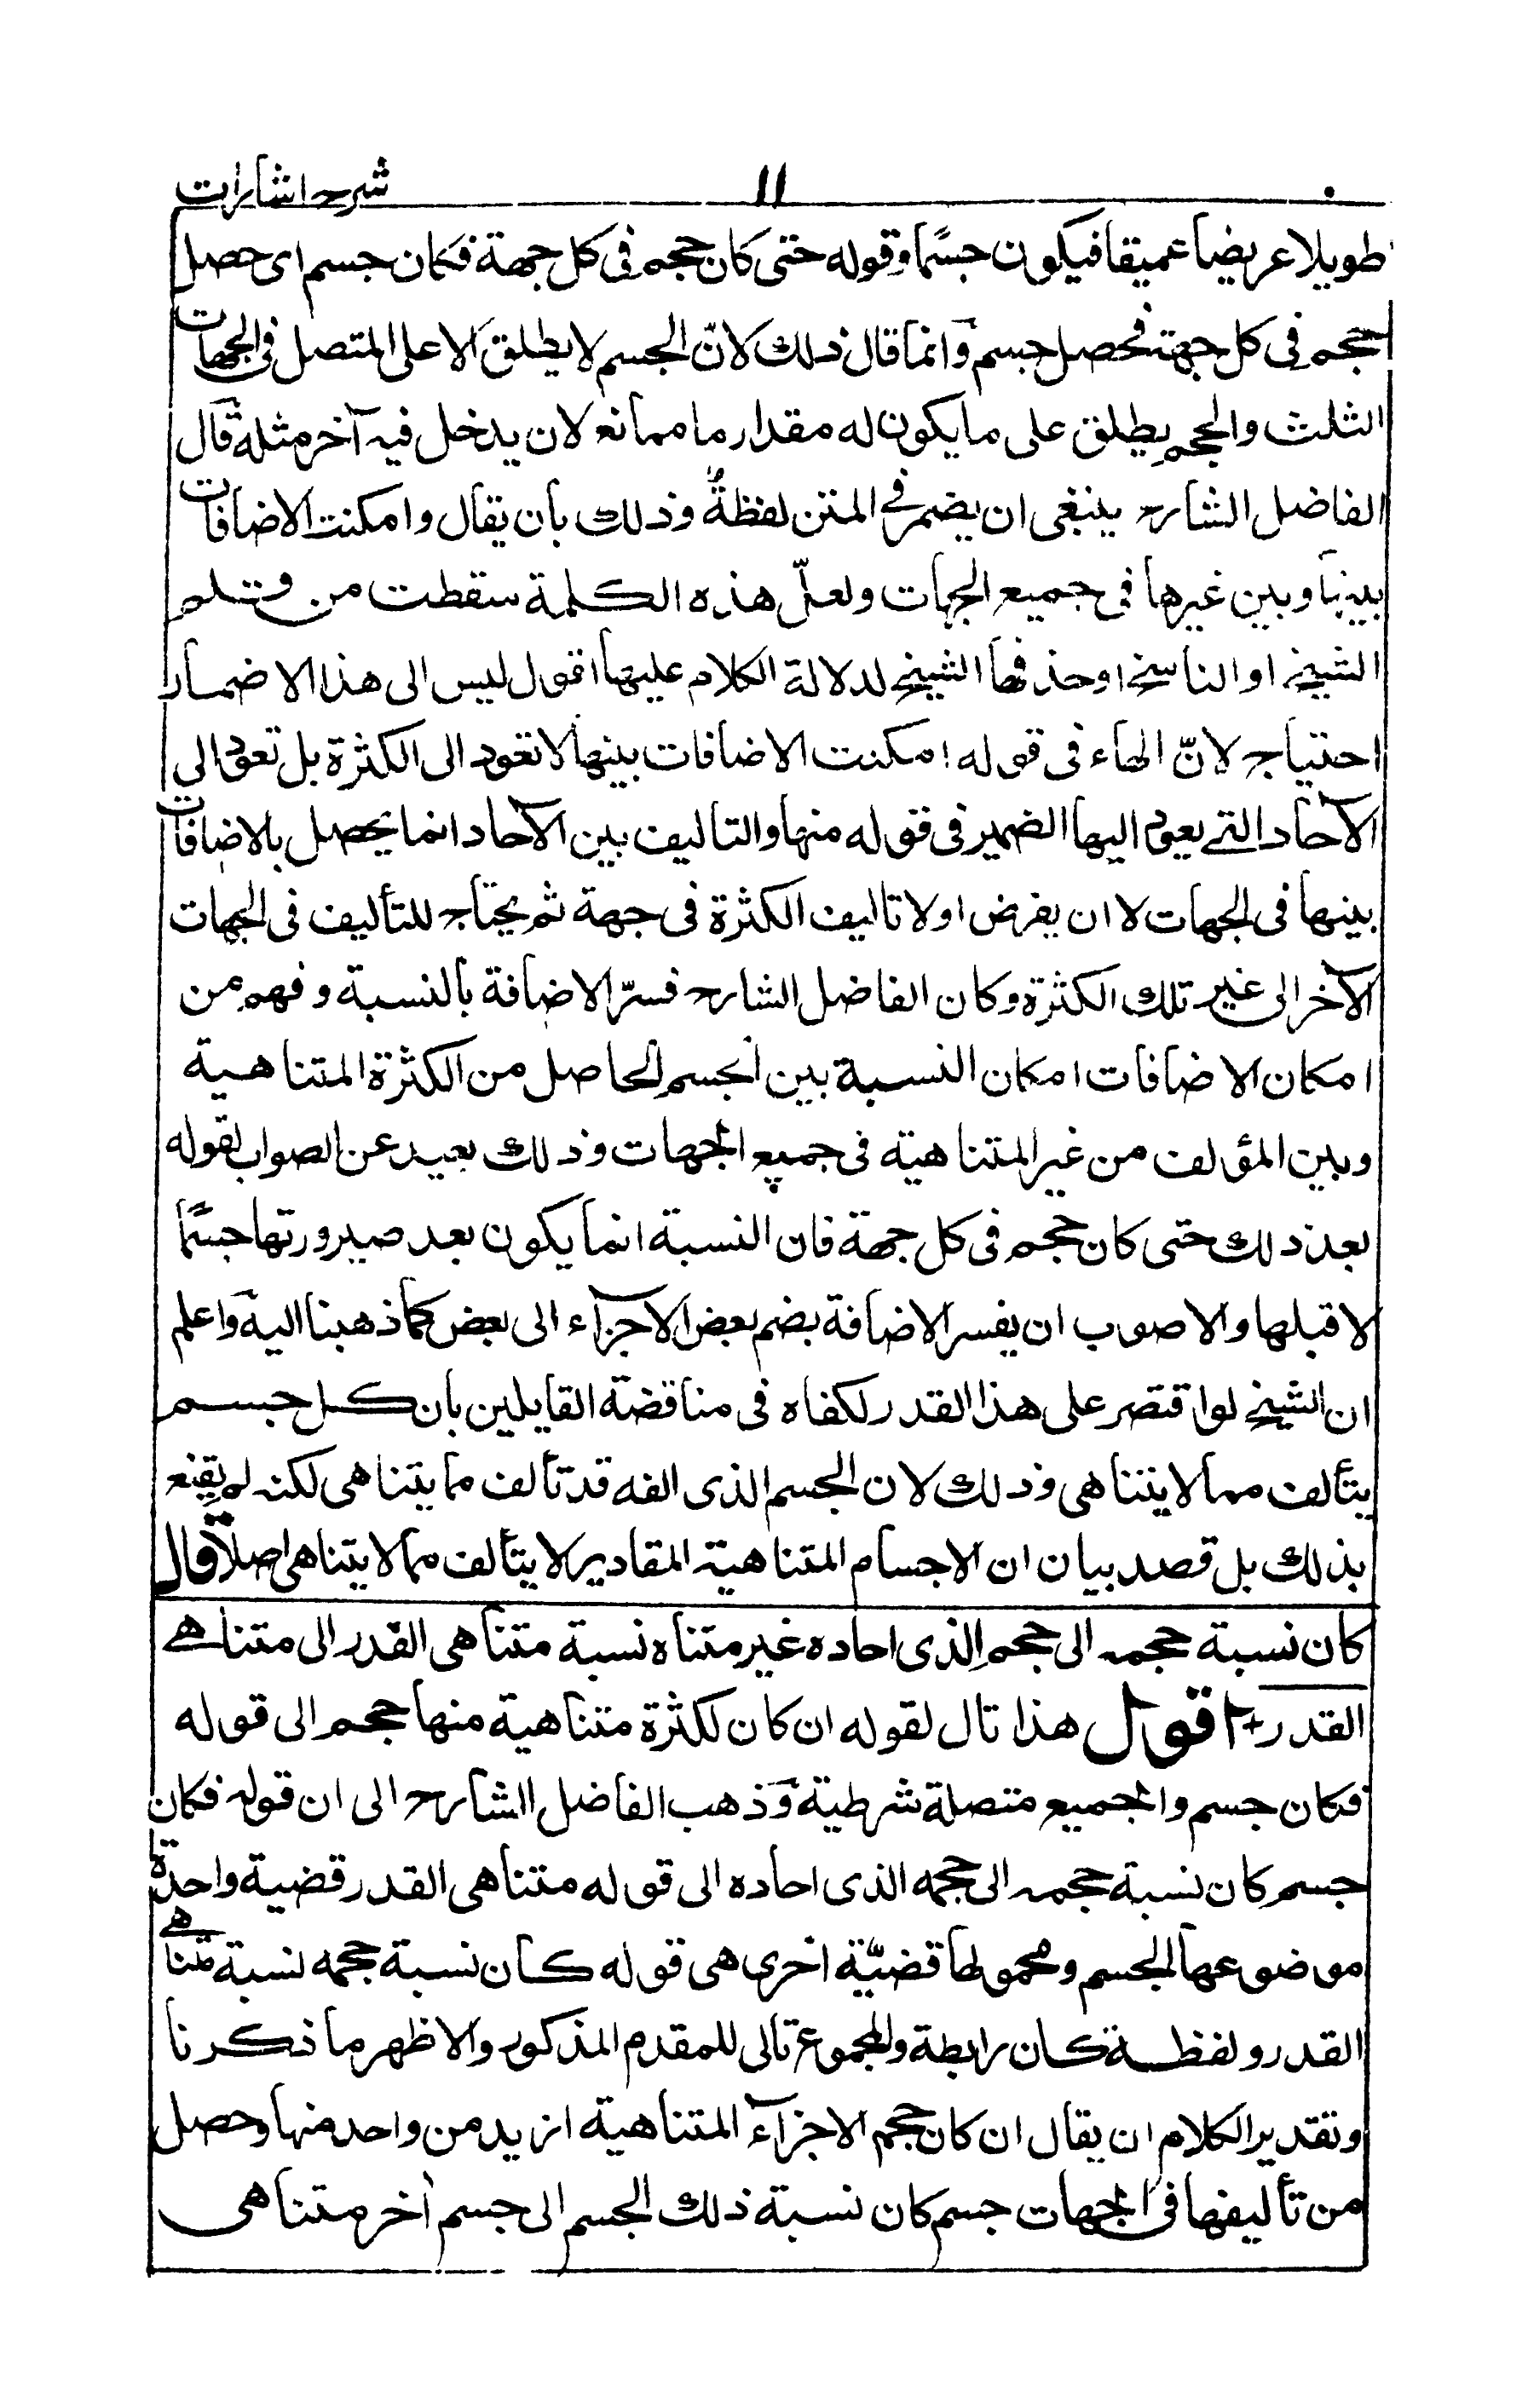 شرح اشارات
١١
طويلا عريضا عميقا فيكون جسمًا وقوله حتى كان حجم فى كل جهة فكان جسم اى حصل
حجم فى كل جهة فحصل جسم وانما قال ذلك لانّ الجسم لا يطلق الا على المتصل فى الجهات
الثلث والحجم يطلق على ما يكون له مقدار ما ممانع لان يدخل فيه آخر مثله قال
الفاضل الشارح ينبغى ان يضمر فى المتن لفظةٌ وذلك بان يقال وامكنت الاضافات
بينها وبين غيرها فى جميع الجهات ولعلّ هذه الكلمة سقطت من قلم
الشيخ او الناسخ او حذفها الشيخ لدلالة الكلام عليها اقول ليس الى هذا الاضمار
احتياج لانّ الهاء فى قوله امكنت الاضافات بينها لا تعود الى الكثرة بل تعود الى
الآحاد التے يعود اليها الضمير فى قوله منها والتاليف بين الآحاد انما يحصل بالاضافات
بينها فى الجهات لا ان يفرض اولا تاليف الكثرة فى جهة ثم يحتاج للتأليف فى الجهات
الآخر الى غير تلك الكثرة وكان الفاضل الشارح فسّر الاضافة بالنسبة وفهم من
امكان الاضافات امكان النسبة بين الجسم الحاصل من الكثرة المتناهية
وبين المؤلف من غير المتناهية فى جميع الجهات وذلك بعيد عن الصواب لقوله
بعد ذلك حتى كان حجم فى كل جهة فان النسبة انما يكون بعد صيرورتها جسمًا
لا قبلها والاصوب ان يفسر الاضافة بضم بعض الاجزاء الى بعض كما ذهبنا اليه واعلم
ان الشيخ لو اقتصر على هذا القدر لكفاه فى مناقضة القايلين بان كل جسم
يتألف مما لا يتناهى وذلك لان الجسم الذى الفه قد تألف مما يتناهى لكنه لم يقنع
بذلك بل قصد بيان ان الاجسام المتناهية المقادير لا يتألف مما لا يتناهى اصلا قال
كان نسبة حجمه الى حجم الذى احاده غير متناه نسبة متناهى القدر الى متناهے
القدر اقول هذا تال لقوله ان كان لكثرة متناهية منها حجم الى قوله
فكان جسم والجميع متصلة شرطية وذهب الفاضل الشارح الى ان قوله فكان
جسم كان نسبة حجمه الى حجمه الذى احاده الى قوله متناهى القدر قضية واحدة
موضوعها الجسم ومحمولها قضيّة اخرى هى قوله كان نسبة حجمه نسبة متناهے
القدر ولفظة كان رابطة والمجموع تالى للمقدم المذكور والاظهر ما ذكرنا
وتقدير الكلام ان يقال ان كان حجم الاجزآء المتناهية ازيد من واحد منها وحصل
من تأليفها فى الجهات جسم كان نسبة ذلك الجسم الى جسم آخر متناهى